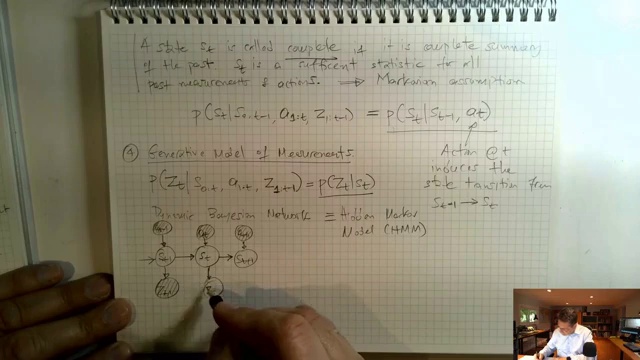 A state St is called complete if it is complete summary
of the past St is a sufficent statistic for all
past measurements & actions. ⟹ Markovian assumption
p(St | S0:t-1, a1:t, Z1:t-1) = p(St | St-1, at)
Action @ t
induces the
state transition from
St-1 → St
④ Generative Model of Measurements
p(Zt | S0:t, a1:t, Z1:t-1) = p(Zt | St)
Dynamic Bayesian Network ≡ Hidden Markov
Model (HMM)
at-1 at at+1
St-1 St St+1
Zt-1